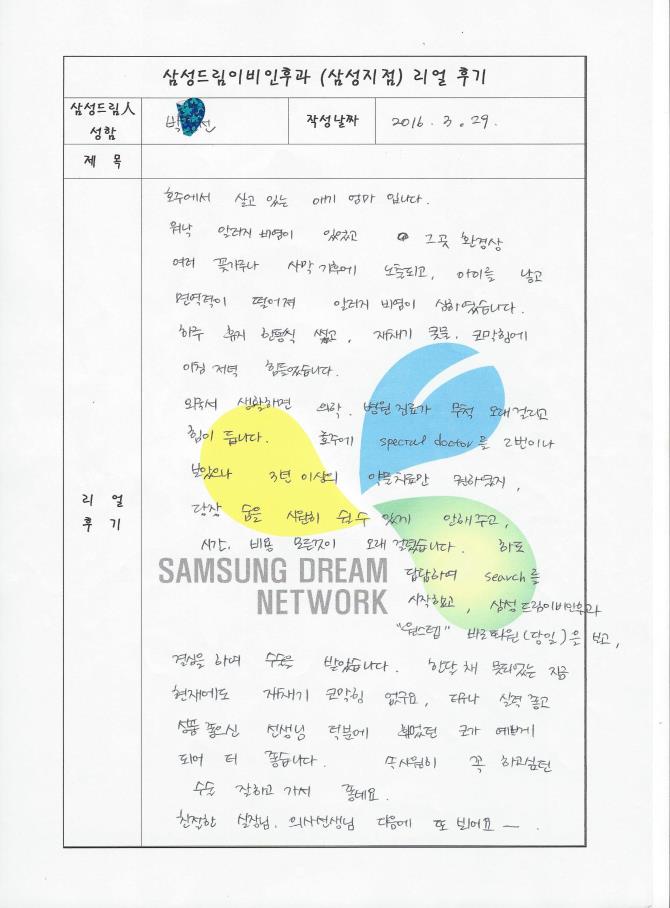 삼성드림이비인후과 (삼성지점) 리얼 후기
삼성드림人 성함
박 선
작성날짜
2016. 3. 29.
제 목
리 얼 후 기
호주에서 살고 있는 애기 엄마 입니다.
워낙 알러지 비염이 있었고 그곳 환경상
여러 꽃가루나 사막 기후에 노출되고, 아이를 낳고
면역력이 떨어져 알러지 비염이 심하였습니다.
하루 휴지 한통씩 썼고, 재채기 콧물, 코막힘에
아침 저녁 힘들었습니다.
외국서 생활하면 의학, 병원 진료가 무척 오래 걸리고
힘이 듭니다. 호주에 special doctor를 2번이나
보았으나 3년 이상의 약물치료만 권하였지,
당장 숨을 시원히 쉴 수 있게 안해주고,
시간, 비용 모든것이 오래 걸렸습니다. 하도
SAMSUNG DREAM
NETWORK
답답하여 search를
시작하였고, 삼성드림이비인후과
"원스텝" 바로화원(당일)을 보고,
결심을 하며 수술을 받았습니다. 한달 채 못되었는 지금
현재에도 재채기 코막힘 없구요, 더욱나 실력 좋고
성품 좋으신 선생님 덕분에 휘었던 코가 예쁘게
되어 더 좋습니다. 꼭 하고싶던
수술 잘하고 가서 좋네요.
친절한 실장님, 의사선생님 다음에 또 뵐어요 ㅡ.